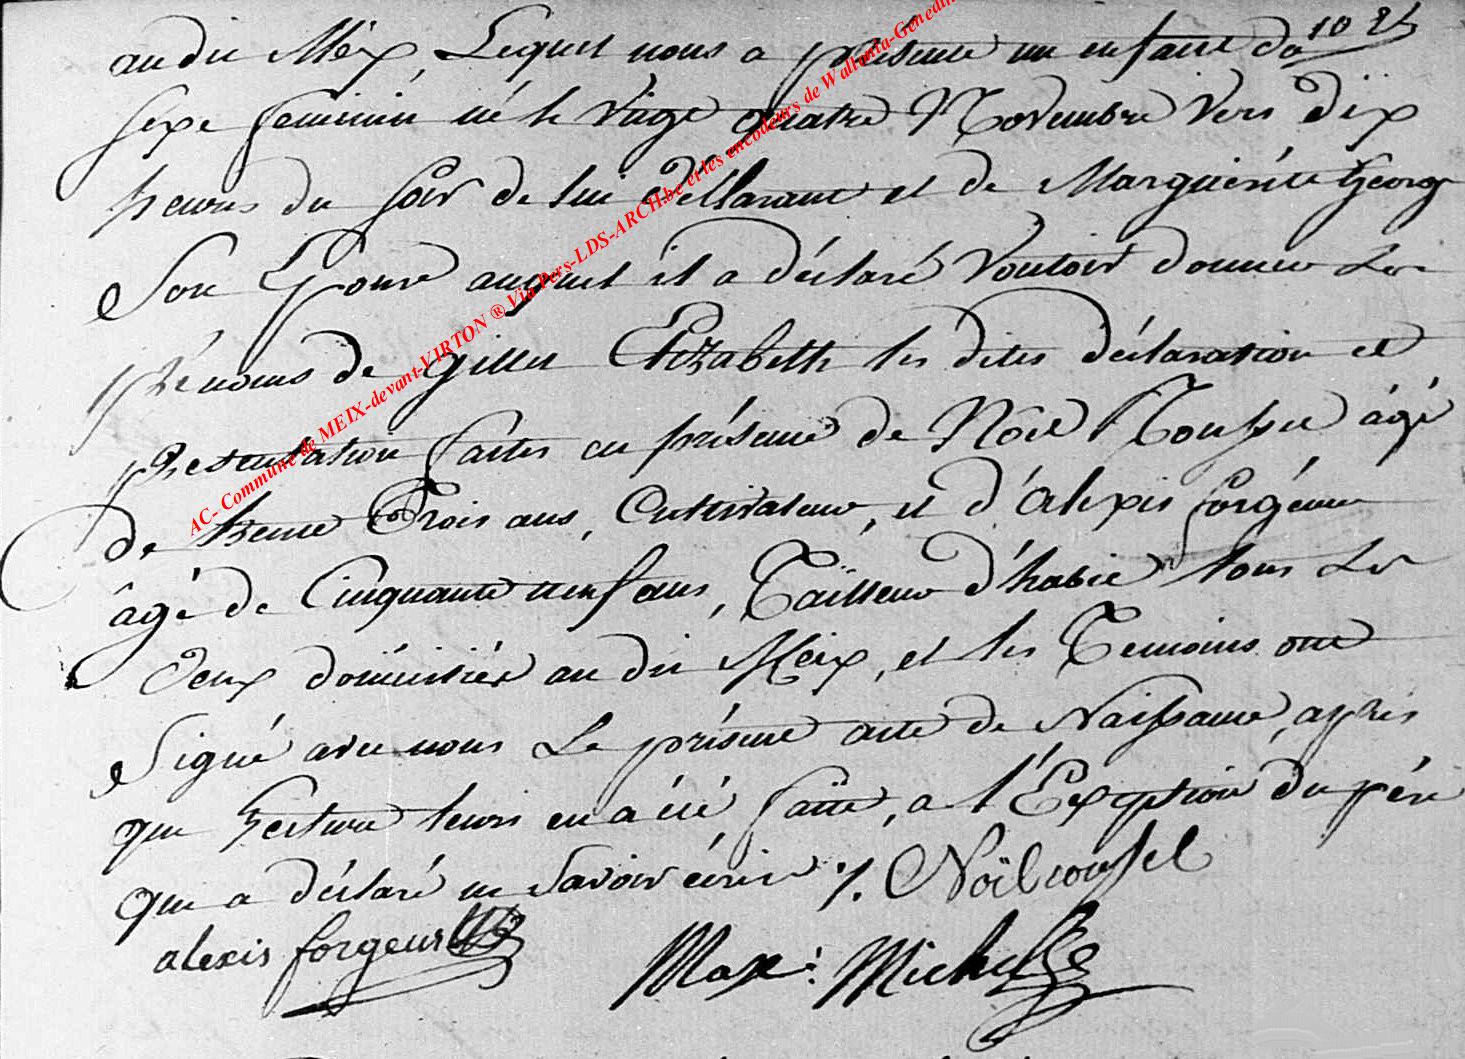 au dit Méix, Lequel nous a présenté un enfant du
sexe feminin né le vingt quatre Novembre vers dix
heures du soir de lui déclarant et de Marguérite Georg
Son Epouse auquel il a déclaré Vouloir donner Les
prénoms de Elizabeth les dites déclaration et
presentation faites en présence de Nöel âgé
de trente Trois ans, Cultivateur, et d'alexis forgeur
âgé de Cinquante neuf ans, Tailleur d'habit tous Les
deux domicilés au dit Meix, et les Temoins ont
Signé avec nous Le présent acte de Naissance, après
que Lecture leurs en a été faite, a l'Exeption du pére
que a déclaré ne Savoir écrire ./. Noël
alexis forgeur
Max: Michel
AC- Commune de MEIX-devant-VIRTON ® Via Pers-LDS-ARCH.be et les encodeurs de Wallonia-Genedin